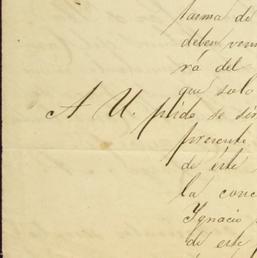 tarma de
deben ven
rá del
que solo
A U. pído, se sir
presente
de éste
la conc
Ygnacio
de este